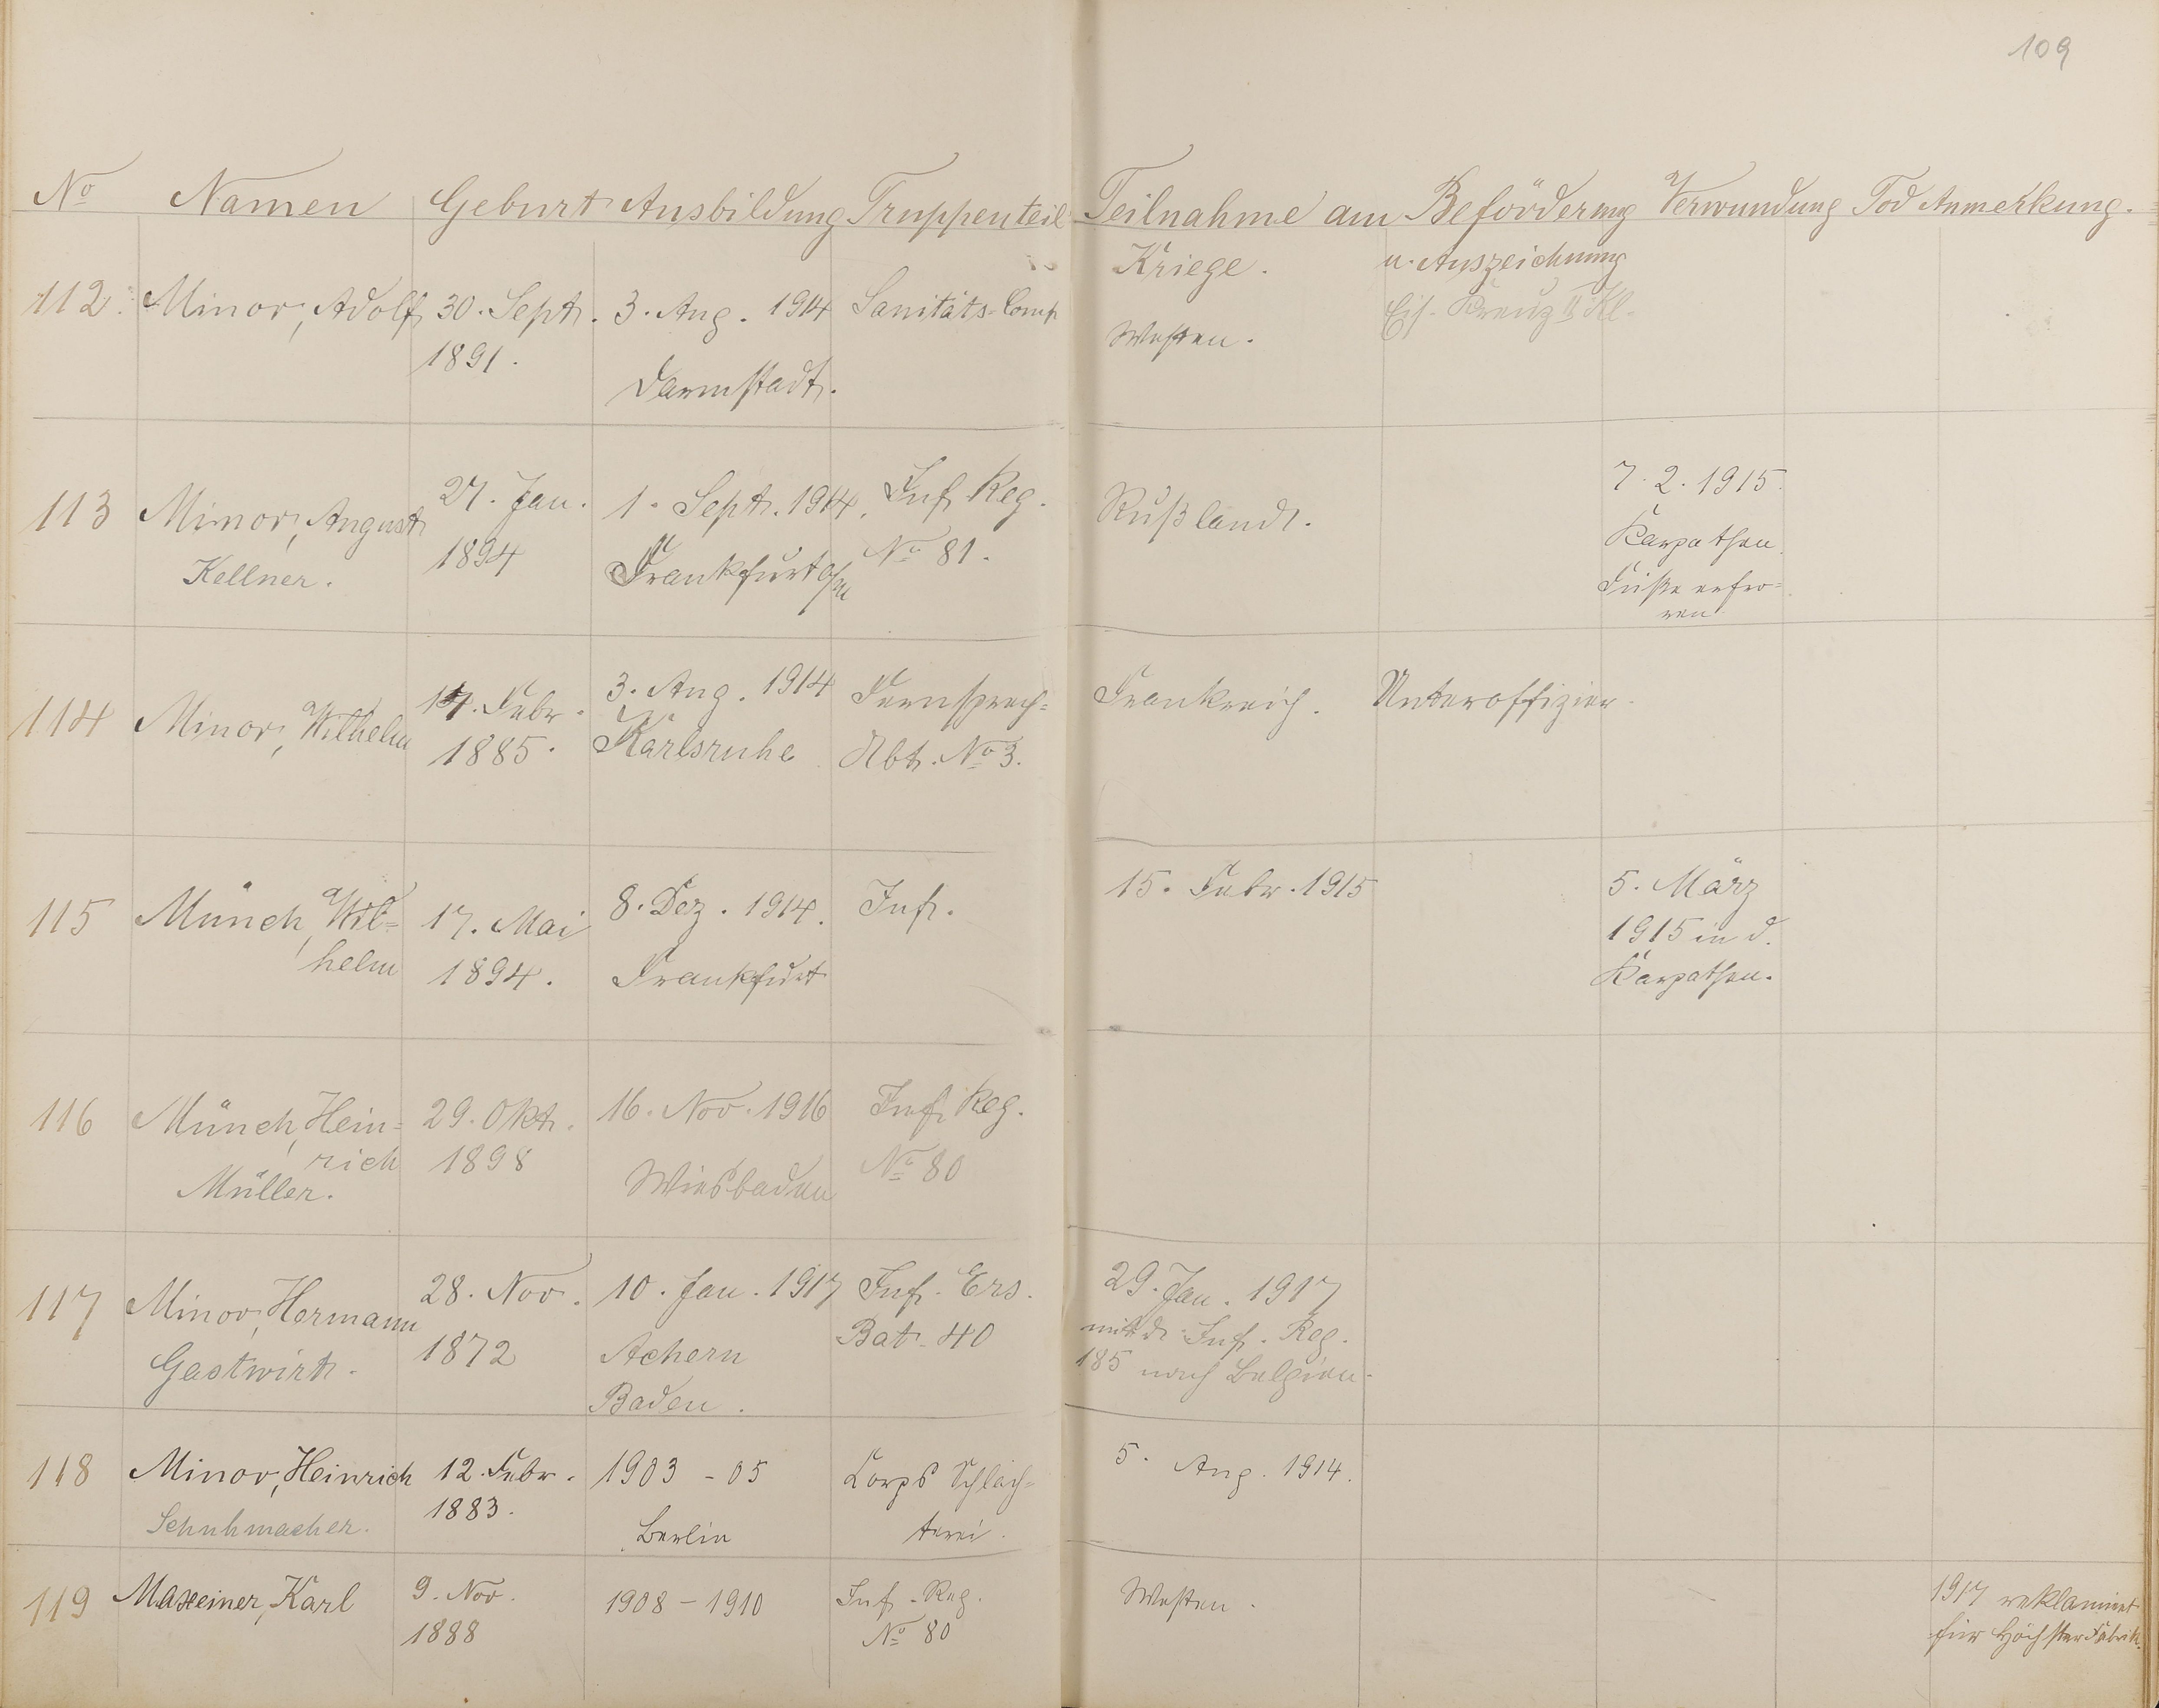 109
No Namen Geburt Ausbildung Truppenteil Teilnahme am Beförderung Verwundung Tod Anmerkung.
Kriege. u. Auszeichnung
112. Minor, Adolf 30. Sept. 3. Aug. 1914 Sanitäts-Comp Eis. Kreuz II Kl.
1891. Darmstadt. Westen.
113 Minor, August 27. Jan. 1. Sept. 1914. Inf. Reg. Rußland. 7. 2. 1915.
Kellner. 1894 Frankfurt a/M No 81. Karpathen.
Füße erfro=
ren
114 Minor, Wilhelm 14. Febr. 3. Aug. 1914 Fernsprech= Frankreich. Unteroffizier.
1885. Karlsruhe Abt. No 3.
115 Münch, Wil= 17. Mai 8. Dez. 1914. Inf. 15. Febr. 1915 5. März
helm 1894. Frankfurt 1915 in d.
Karpathen.
116 Münch, Hein= 29. Okt. 16. Nov. 1916 Inf. Reg.
rich 1898 Wiesbaden No 80
Müller.
117 Minor, Hermann 28. Nov. 10. Jan. 1917 Inf. Ers. 29. Jan. 1917
Gastwirt. 1872 Achern Bat. 40 mit d. Inf. Reg.
Baden. 185 nach Belgien.
118 Minor, Heinrich 12. Febr. 1903 - 05 Corps Schläch= 5. Aug. 1914.
Schuhmacher. 1883. Berlin terei.
119 Maxeiner, Karl 9. Nov. 1908 - 1910 Inf. Reg. Westen. 1917 reklamiert
1888 No 80 für Höchster Fabrik.